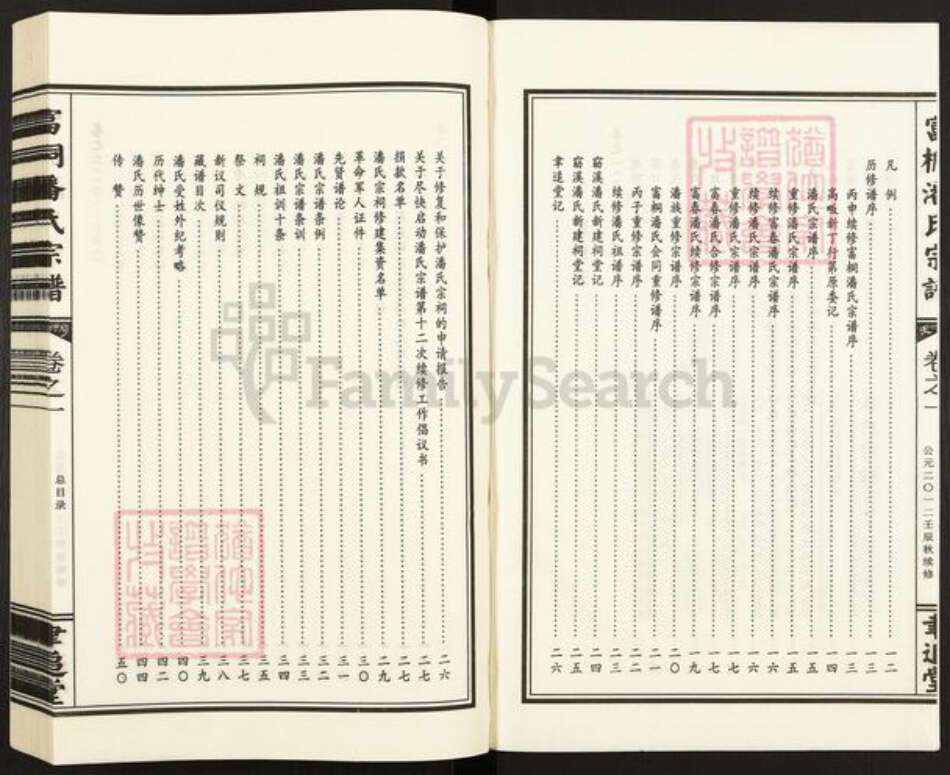 富桐潘氏宗谱
卷之一
公元二〇一二壬辰秋续修
聿追堂
凡例 一二
历修谱序 一三
丙申续修富桐潘氏宗谱序 一三
高畈新丁行第原委记 一四
潘氏宗谱序 一五
重修潘氏宗谱序 一五
续修富春潘氏宗谱序 一六
续修潘氏宗谱序 一六
重修潘氏宗谱序 一七
富春潘氏合修宗谱序 一八
富春潘氏续修宗谱序 一九
潘族重修宗谱序 二〇
富桐潘氏会同重修谱序 二一
丙子重修宗谱序 二二
续修潘氏祖谱序 二三
窈溪潘氏新建祠堂记 二四
窈溪潘氏新建祠堂记 二五
聿追堂记 二六
关于修复和保护潘氏宗祠的申请报告 二六
关于尽快启动潘氏宗谱第十二次续修工作倡议书 二七
捐款名单 二七
潘氏宗祠修建集资名单 二九
革命军人证件 三〇
先贤谱论 三一
潘氏宗谱条例 三二
潘氏宗谱条训 三三
潘氏祖训十条 三四
祠规 三五
祭文 三七
新议司仪规则 三八
藏谱目次 三九
潘氏受姓外纪考略 四〇
历代绅士 四二
潘氏历世像赞 四四
传赞 五〇
富桐潘氏宗谱
卷之一
总目录
聿追堂
FamilySearch